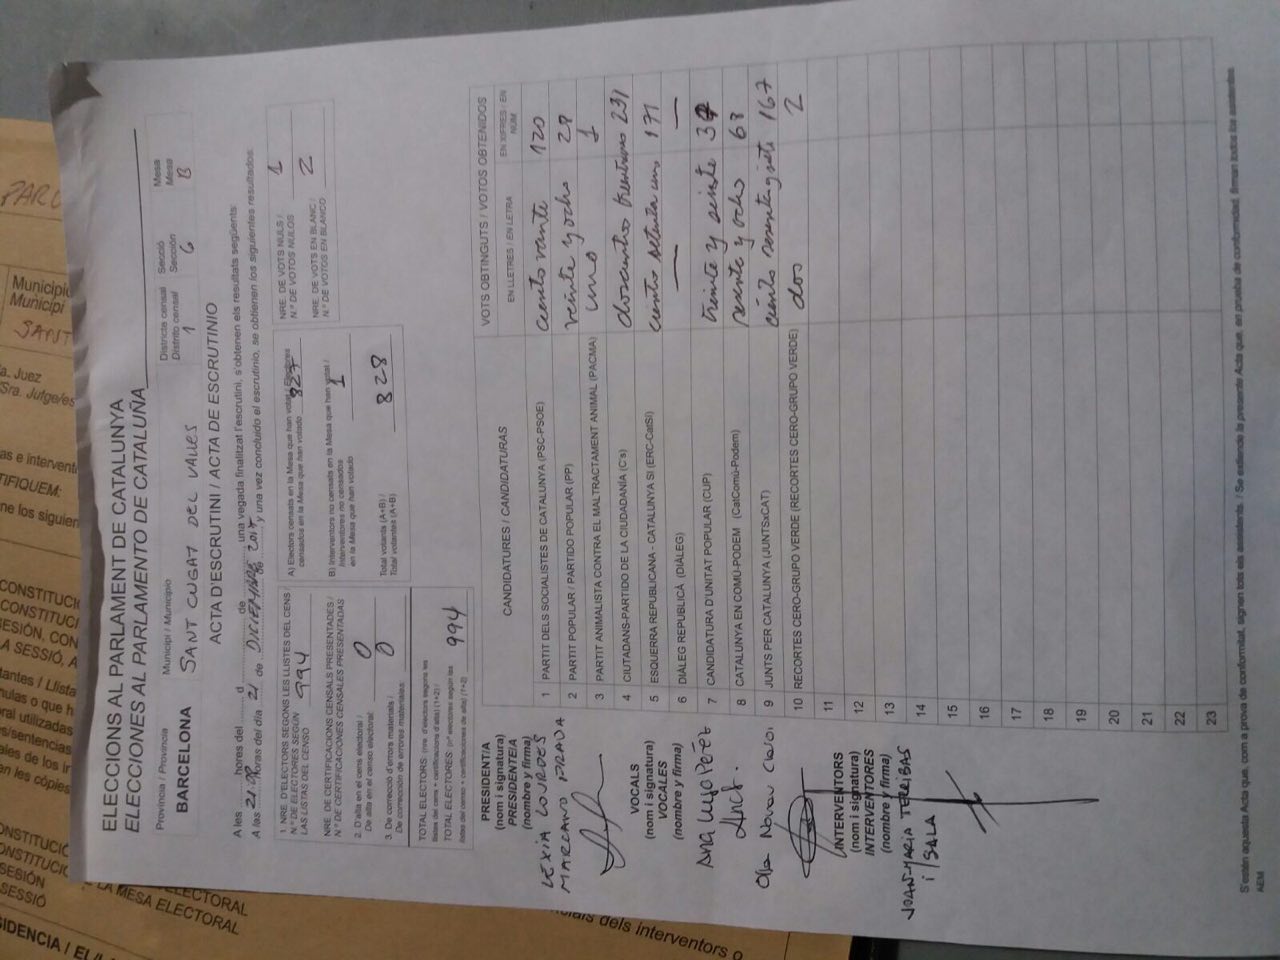 ELECCIONS AL PARLAMENT DE CATALUNYA
ELECCIONES AL PARLAMENTO DE CATALUÑA
Província / Provincia
BARCELONA
Municipi / Municipio
SANT CUGAT DEL VALLES
Districte censal
Distrito censal
1
Secció
Sección
6
Mesa
Mesa
B
ACTA D'ESCRUTINI / ACTA DE ESCRUTINIO
A les ........ hores del ...... d ............ de ............ una vegada finalitzat l'escrutini, s'obtenen els resultats següents:
A las 21:00 horas del día 21 de DICIEMBRE de 2017 y una vez concluido el escrutinio, se obtienen los siguientes resultados:
1. NRE. D'ELECTORS SEGONS LES LLISTES DEL CENS /
N.º DE ELECTORES SEGÚN
LAS LISTAS DEL CENSO
994
NRE. DE CERTIFICACIONS CENSALS PRESENTADES /
N.º DE CERTIFICACIONES CENSALES PRESENTADAS
2. D'alta en el cens electoral /
De alta en el censo electoral:
0
3. De correcció d'errors materials /
De corrección de errores materiales:
0
TOTAL ELECTORS: (nre. d'electors segons les
llistes del cens + certificacions d'alta) (1+2) /
TOTAL ELECTORES: (nº electores según las
listas del censo + certificaciones de alta) (1+2)
994
A) Electors censats en la Mesa que han votat / Electores
censados en la Mesa que han votado
827
B) Interventors no censats en la Mesa que han votat /
Interventores no censados
en la Mesa que han votado
1
Total votants (A+B) /
Total votantes (A+B)
828
NRE. DE VOTS NULS /
N.º DE VOTOS NULOS
1
NRE. DE VOTS EN BLANC /
N.º DE VOTOS EN BLANCO
2
CANDIDATURES / CANDIDATURAS
VOTS OBTINGUTS / VOTOS OBTENIDOS
EN LLETRES / EN LETRA
EN XIFRES / EN
NÚM
1 PARTIT DELS SOCIALISTES DE CATALUNYA (PSC-PSOE) ciento vante 120
2 PARTIT POPULAR / PARTIDO POPULAR (PP) veinte y ocho 28
3 PARTIT ANIMALISTA CONTRA EL MALTRACTAMENT ANIMAL (PACMA) uno 1
4 CIUTADANS-PARTIDO DE LA CIUDADANÍA (C's) doscientos treintauno 231
5 ESQUERRA REPUBLICANA - CATALUNYA SÍ (ERC-CatSÍ) ciento setenta uno 171
6 DIÀLEG REPUBLICÀ (DIÀLEG) — —
7 CANDIDATURA D'UNITAT POPULAR (CUP) treinte y seinte 37
8 CATALUNYA EN COMÚ-PODEM (CatComú-Podem) sesente y ocho 68
9 JUNTS PER CATALUNYA (JUNTSxCAT) ciento sesentaysiete 167
10 RECORTES CERO-GRUPO VERDE (RECORTES CERO-GRUPO VERDE) dos 2
11
12
13
14
15
16
17
18
19
20
21
22
23
PRESIDENT/A
(nom i signatura)
PRESIDENTE/A
(nombre y firma)
LEXIA LOURDES
MARCANO PRADA
VOCALS
(nom i signatura)
VOCALES
(nombre y firma)
Ana Lugo Pérez
INTERVENTORS
(nom i signatura)
INTERVENTORES
(nombre y firma)
JOAN-MARIA TERRIBAS
i SALA
S'estén aquesta Acta que, com a prova de conformitat, signen tots els assistents. / Se extiende la presente Acta que, en prueba de conformidad, firman todos los asistentes.
AEM
Municipio
Municipi
SANT
a. Juez
Sra. Jutge/es
as e intervent
TIFIQUEM:
ne los siguien
LA MESA ELECTORAL
dels interventors o